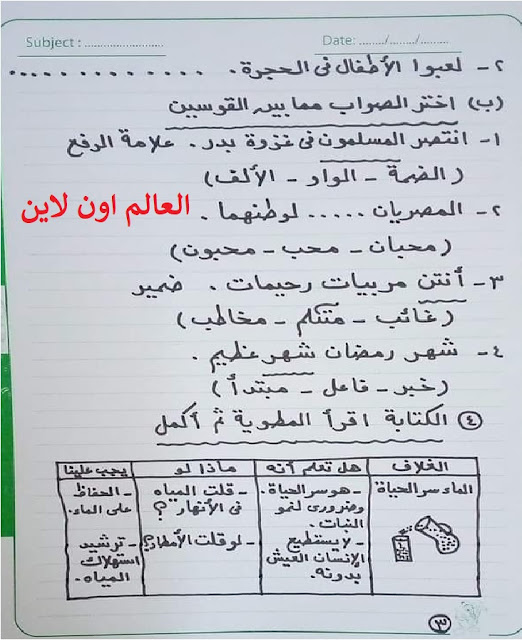 Subject : ........................
Date: ......../......../.........
٢- لعبوا الأطفال فى الحجرة. .............
(ب) اختر الصواب مما بين القوسين
١- انتصر المسلمون فى غزوة بدر. علامة الرفع
(الضمة - الواو - الألف)
٢- المصريان ..... لوطنهما .
العالم اون لاين
(محبان - محب - محبون)
٣- أنتن مربيات رحيمات . ضمير
(غائب - متكلم - مخاطب)
٤- شهر رمضان شهر عظيم .
(خبر - فاعل - مبتدأ)
٤ الكتابة اقرأ المطوية ثم أكمل
الغلاف
الماء سر الحياة
هل تعلم أنه
- هو سر الحياة.
وضرورى لنمو
النبات.
- لا يستطيع
الإنسان العيش
بدونه.
ماذا لو
- قلت المياه
فى الأنهار؟
- لو قلت الأمطار؟
يجب علينا
- الحفاظ
على الماء.
- ترشيد
استهلاك
المياه.
٣